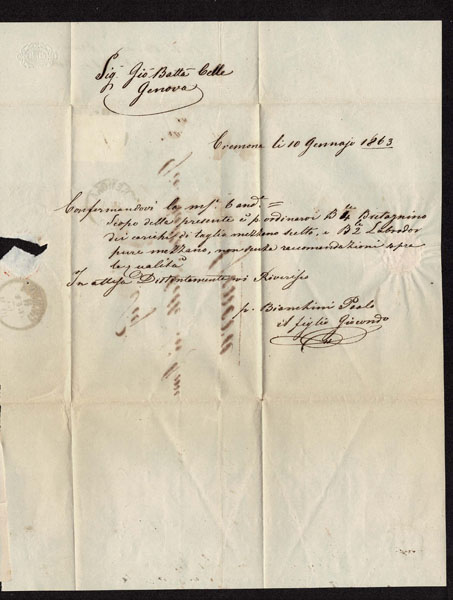 Sig.r Gio Batta Celle
Genova
Cremona li 10 Gennajo 1863
Confermandovi la m/ 6 and.e =
Scopo della presente è p ordinarvi B.le 4 Bretagnino
dei carichi di taglio mezzano scelto, e B.le 2 Labrador
pure mezzano, non senza raccomandazioni sopra
la qualità
In attesa Distintamente vi Riverisco
p. Bianchini Paolo
il figlio Giocondo